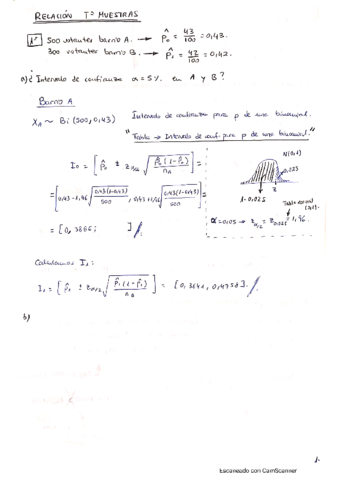 RELACIÓN Tª MUESTRAS
1º 500 votantes barrio A. → P̂₀ = 43/100 = 0,43.
300 votantes barrio B. → P̂₁ = 42/100 = 0,42.
a) ¿Intervalo de confianza α = 5% en A y B?
Barrio A
X_A ~ Bi (500, 0,43) Intervalo de confianza para p de una binomial.
"Tabla → Intervalo de conf. para p de una binomial."
I₀ = [ p̂₀ ± z_α/2 √(p̂₀(1-p̂₀)/n_A) ] =
N(0,1)
0,025
z
1-0,025
= [ 0,43 - 1,96 √(0,43(1-0,43)/500), 0,43 + 1,96 √(0,43(1-0,43)/500) ] =
α = 0,05 → z_α/2 = z_0,025 = 1,96.
= [0,3866; ]
Calculamos I₁:
I₁ = [ p̂₁ ± z_α/2 √(p̂₁(1-p̂₁)/n_B) ] = [0,3641, 0,4758]
b)
1.
Escaneado con CamScanner